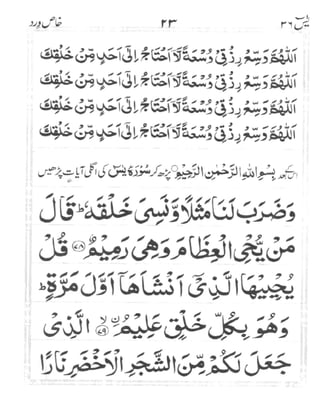 یٰسٓ ۳۶ ۲۳ خاص ورد
اَللّٰهُمَّ وَسِّعْ رِزْقِیْ وُسْعَةً لَّا اَحْتَاجُ اِلٰی اَحَدٍ مِّنْ خَلْقِكَ
اَللّٰهُمَّ وَسِّعْ رِزْقِیْ وُسْعَةً لَّا اَحْتَاجُ اِلٰی اَحَدٍ مِّنْ خَلْقِكَ
اَللّٰهُمَّ وَسِّعْ رِزْقِیْ وُسْعَةً لَّا اَحْتَاجُ اِلٰی اَحَدٍ مِّنْ خَلْقِكَ
اَللّٰهُمَّ وَسِّعْ رِزْقِیْ وُسْعَةً لَّا اَحْتَاجُ اِلٰی اَحَدٍ مِّنْ خَلْقِكَ
بعد بِسْمِ اللّٰهِ الرَّحْمٰنِ الرَّحِیْمِ پڑھ کر سُوْرَۃ یٰسٓ کی اگلی آیات پڑھیں
وَضَرَبَ لَنَا مَثَلًا وَّنَسِیَ خَلْقَهٗ ؕ قَالَ
مَنْ یُّحْیِ الْعِظَامَ وَهِیَ رَمِیْمٌ ﴿۷۸﴾ قُلْ
یُحْیِیْهَا الَّذِیْۤ اَنْشَاَهَاۤ اَوَّلَ مَرَّةٍ ؕ
وَهُوَ بِكُلِّ خَلْقٍ عَلِیْمُۨ ﴿ۙ۷۹﴾ الَّذِیْ
جَعَلَ لَكُمْ مِّنَ الشَّجَرِ الْاَخْضَرِ نَارًا